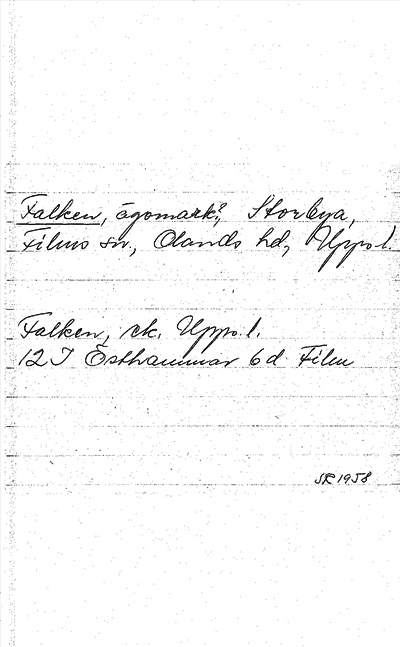 Falken, ägomark?, Storbya,
Films sn., Olands hd, Uppl.
Falken, ek. Uppl.
12 I Östhammar 6d Film
SR 1958